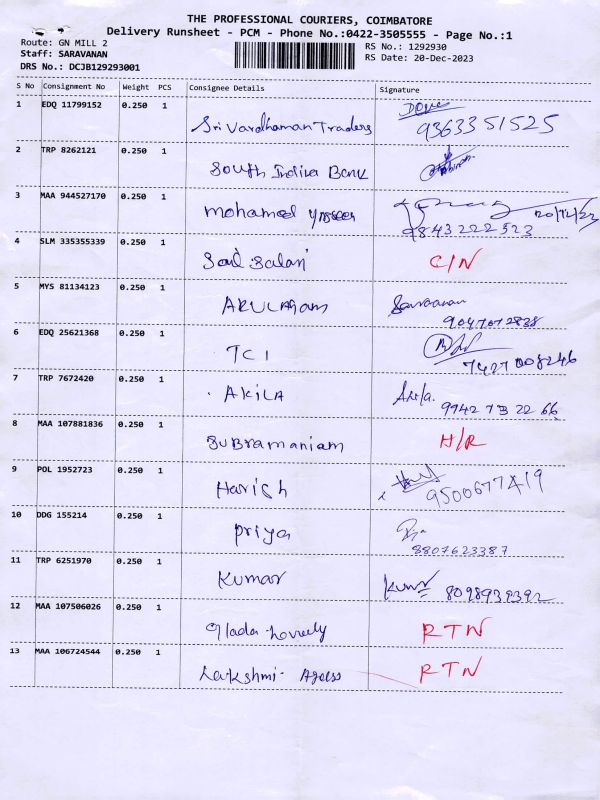 THE PROFESSIONAL COURIERS, COIMBATORE
Delivery Runsheet - PCM - Phone No.:0422-3505555 - Page No.:1
Route: GN MILL 2 RS No.: 1292930
Staff: SARAVANAN RS Date: 20-Dec-2023
DRS No.: DCJB129293001
S No Consignment No Weight PCS Consignee Details Signature
1 EDQ 11799152 0.250 1 Sri Vardhaman Traders 9363351525
2 TRP 8262121 0.250 1 South Indiva Bank
3 MAA 944527170 0.250 1 mohamed 20/12/23
9843222523
4 SLM 335355339 0.250 1 C/N
5 MYS 81134123 0.250 1 Saravanan
9047072838
6 EDQ 25621368 0.250 1 TCI
7427008246
7 TRP 7672420 0.250 1 AKILA
9942 73 22 66
8 MAA 107881836 0.250 1 SUBRAMANIAM H/R
9 POL 1952723 0.250 1 Harish 9500677419
10 DDG 155214 0.250 1 Priya
8807623387
11 TRP 6251970 0.250 1 Kumar Kumar 8098939392
12 MAA 107506026 0.250 1 RTN
13 MAA 106724544 0.250 1 Lakshmi RTN